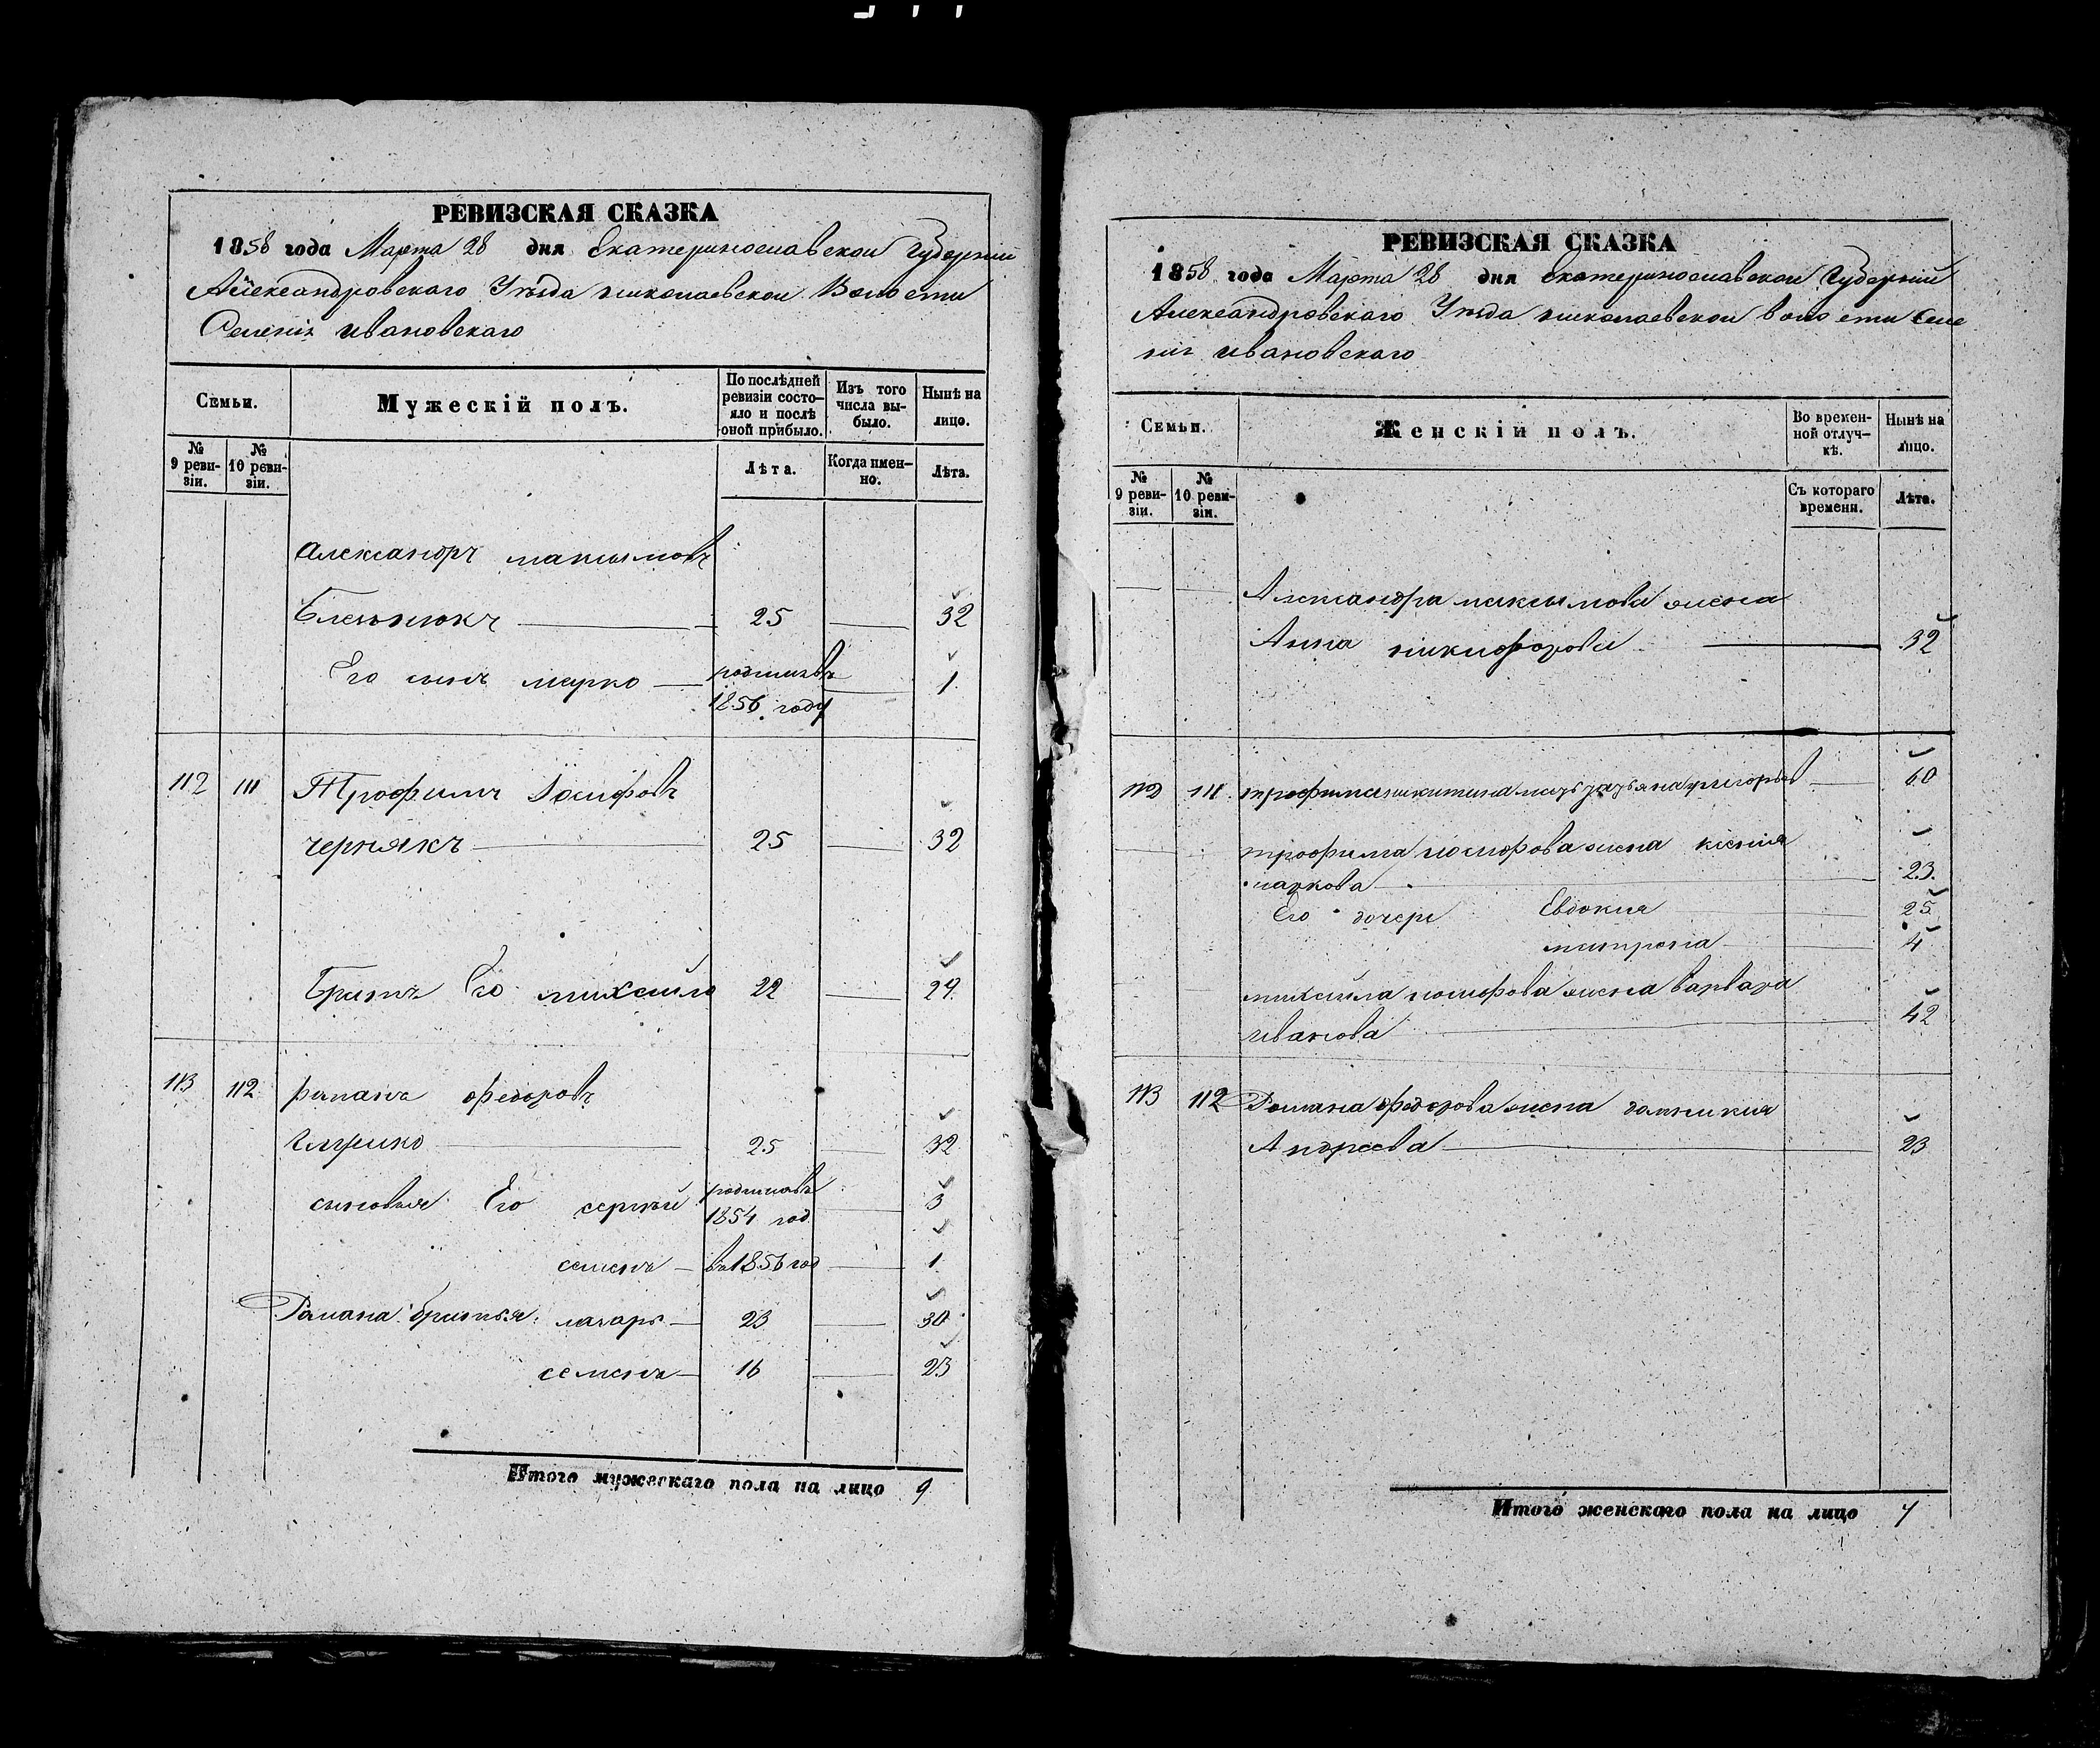 РЕВИЗСКАЯ СКАЗКА
1858 года Марта 28 дня Екатеринославской Губерний
Александровского Уѣзда николаевской Волости
Селения ивановскаго
Семьи.
Мужескій полъ.
По послѣдней ревизіи состояло и послѣ оной прибыло.
Изъ того числа выбыло.
Нынѣ на лицо.
№ 9 ревизіи.
№ 10 ревизіи.
Лѣта.
Когда именно.
Лѣта.
Александръ максимовъ
25 32
Его сынъ марко родился 1
1856 году
112 111 Трофимъ Іосифовъ
чернякъ 25 32
Братъ Его михайло 22 29
113 112 раманъ федоровъ
25 32
сыновья Его сергѣй родился 3
1854 год
семенъ въ 1856 год 1
Рамана братья лазарь 23 30
семенъ 16 23
Итого мужескаго пола на лицо 9
РЕВИЗСКАЯ СКАЗКА
1858 года Марта 28 дня Екатеринославской Губерний
Александровскаго Уѣзда николаевской волости Селе
ния ивановскаго
Семьи.
Женскій полъ.
Во временной отлучкѣ.
Нынѣ на лицо.
№ 9 ревизіи.
№ 10 ревизіи.
Съ котораго времени.
Лѣта.
Александра максимова жена
Анна никифорова 32
112 111 трофима никитина мать григорьев 60
трофима иосифова жена ксения
маркова 23
Его дочери Евдокия 25
матрона 4
михайла иосифова жена варвара
иванова 42
113 112 Романа федорова жена домникия
Андреева 23
Итого женскаго пола на лицо 7